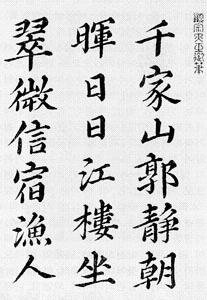 千家山郭靜朝
暉日日江樓坐
翠微信宿漁人